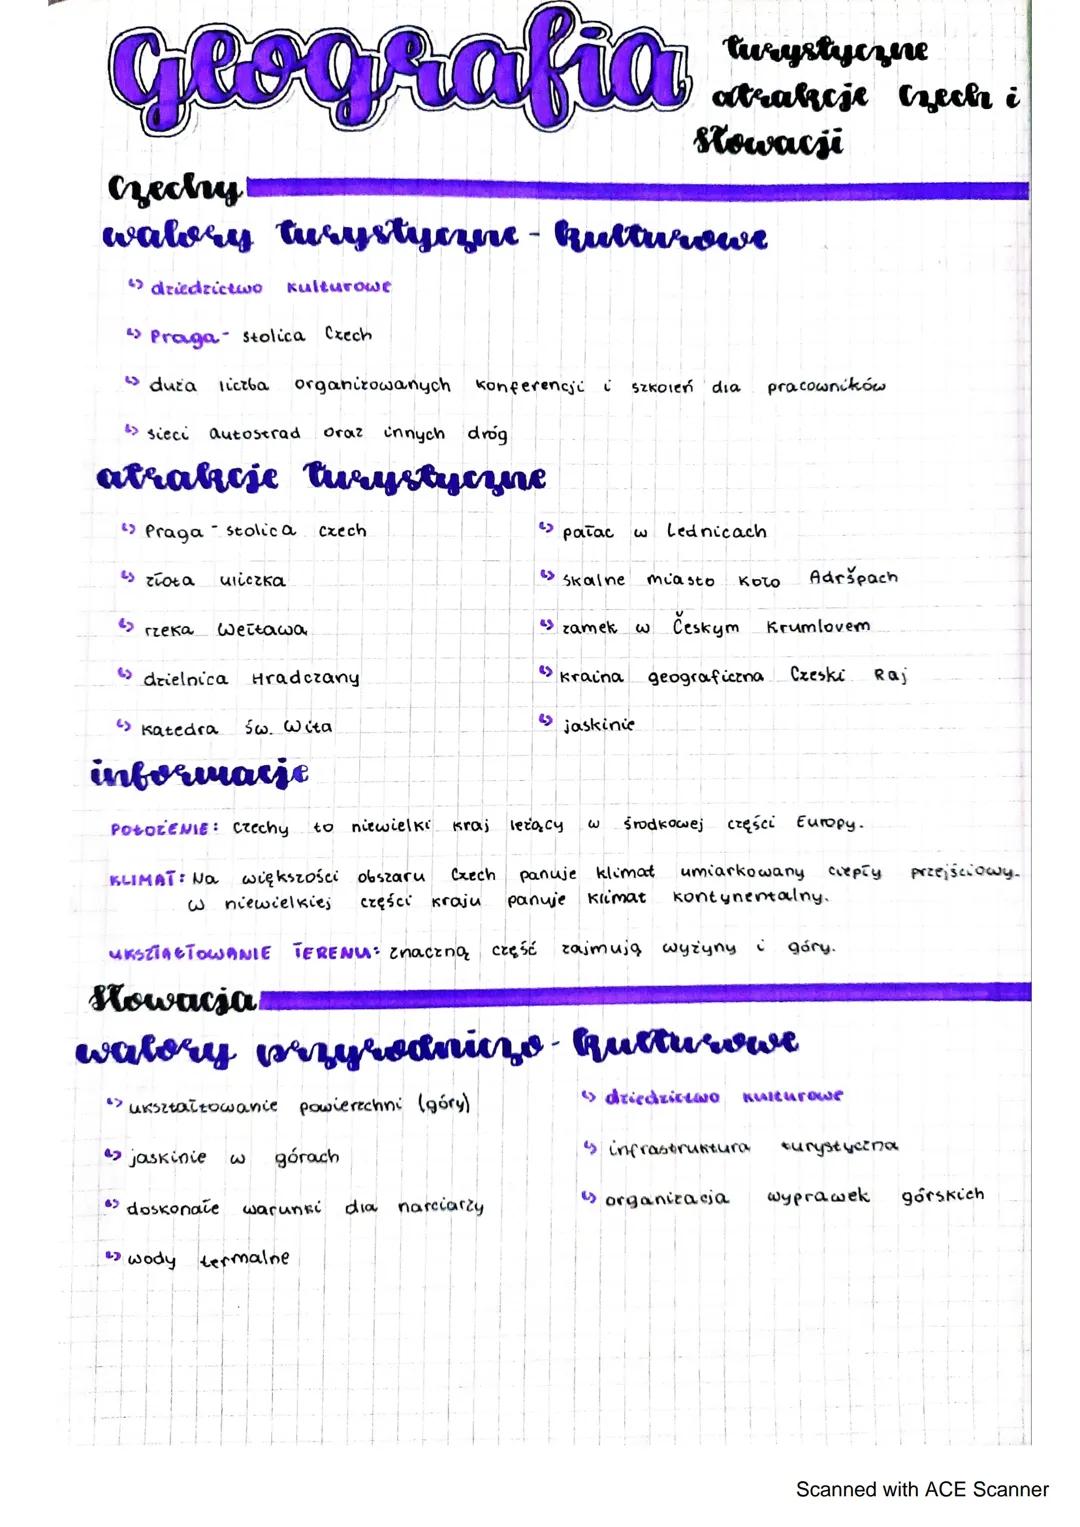 Geografia
turystyczne
atrakcje Czech i
Słowacji
Czechy
walory turystyczne - kulturowe
↳ dziedzictwo kulturowe
↳ Praga - stolica Czech
↳ duża liczba organizowanych konferencji i szkoleń dla pracowników
↳ sieci autostrad oraz innych dróg
atrakcje turystyczne
↳ Praga - stolica Czech
↳ złota uliczka
↳ rzeka Wełtawa
↳ dzielnica Hradczany
↳ katedra św. Wita
↳ pałac w Lednicach
↳ skalne miasto koło Adršpach
↳ zamek w Českym Krumlovem
↳ kraina geograficzna Czeski Raj
↳ jaskinie
informacje
POŁOŻENIE: Czechy to niewielki kraj leżący w środkowej części Europy.
KLIMAT: Na większości obszaru Czech panuje klimat umiarkowany ciepły przejściowy.
w niewielkiej części kraju panuje klimat kontynentalny.
UKSZTAŁTOWANIE TERENU: znaczną część zajmują wyżyny i góry.
Słowacja
walory przyrodniczo - kulturowe
↳ ukształtowanie powierzchni (góry)
↳ jaskinie w górach
↳ doskonałe warunki dla narciarzy
↳ wody termalne
↳ dziedzictwo kulturowe
↳ infrastruktura turystyczna
↳ organizacja wyprawek górskich
Scanned with ACE Scanner